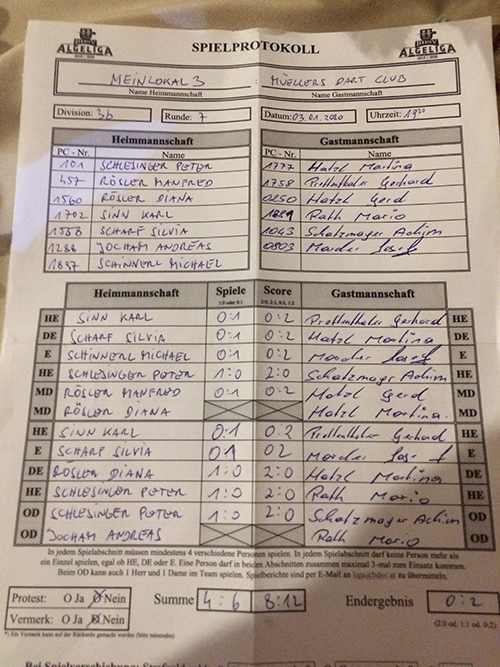 ALGELIGA SPIELPROTOKOLL ALGELIGA
MEINLOKAL 3 : MUELLERS DART CLUB
Name Heimmannschaft Name Gastmannschaft
Division: 3b Runde: 7 Datum: 03.01.2020 Uhrzeit: 19
Heimmannschaft Gastmannschaft
PC - Nr. Name PC - Nr. Name
101 SCHLESINGER PETER 1777 Hatzl Martina
457 RÖSLER MANFRED 1758 Gerhard
1560 RÖSLER DIANA 0250 Hatzl Gerd
1702 SINN KARL 1889 Rath Mario
1558 SCHARF SILVIA 1043 Schatzmayer Achim
1288 JOCHAM ANDREAS 0803 Josef
1887 SCHINNERL MICHAEL
Heimmannschaft Spiele Score Gastmannschaft
1:0 oder 0:1 2:0, 2:1, 0:2, 1:2
HE SINN KARL 0:1 0:2 Gerhard HE
DE SCHARF SILVIA 0:1 0:2 Hatzl Martina DE
E SCHINNERL MICHAEL 0:1 0:2 Josef E
HE SCHLESINGER PETER 1:0 2:0 Schatzmayer Achim HE
MD RÖSLER MANFRED 0:1 0:2 Hatzl Gerd MD
MD RÖSLER DIANA Hatzl Martina MD
HE SINN KARL 0:1 0:2 Gerhard HE
E SCHARF SILVIA 01 02 Josef E
DE RÖSLER DIANA 1:0 2:0 Hatzl Martina DE
HE SCHLESINGER PETER 1:0 2:0 Rath Mario HE
OD SCHLESINGER PETER 1:0 2:0 Schatzmayer Achim OD
OD JOCHAM ANDREAS Rath Mario OD
In jedem Spielabschnitt müssen mindestens 4 verschiedene Personen spielen. In jedem Spielabschnitt darf keine Person mehr als
ein Einzel spielen, egal ob HE, DE oder E. Eine Person darf in beiden Abschnitten zusammen maximal 3-mal zum Einsatz kommen.
Beim OD kann auch 1 Herr und 1 Dame im Team spielen. Spielberichte sind per E-Mail an liga@bdv.at zu übermitteln.
Protest: O Ja O Nein Summe 4:6 8:12 Endergebnis 0:2
Vermerk: O Ja O Nein (2:0 od. 1:1 od. 0:2)
*) Ein Vermerk kann auf der Rückseite gemacht werden (bitte mitsenden)
Bei Spielverschiebung: